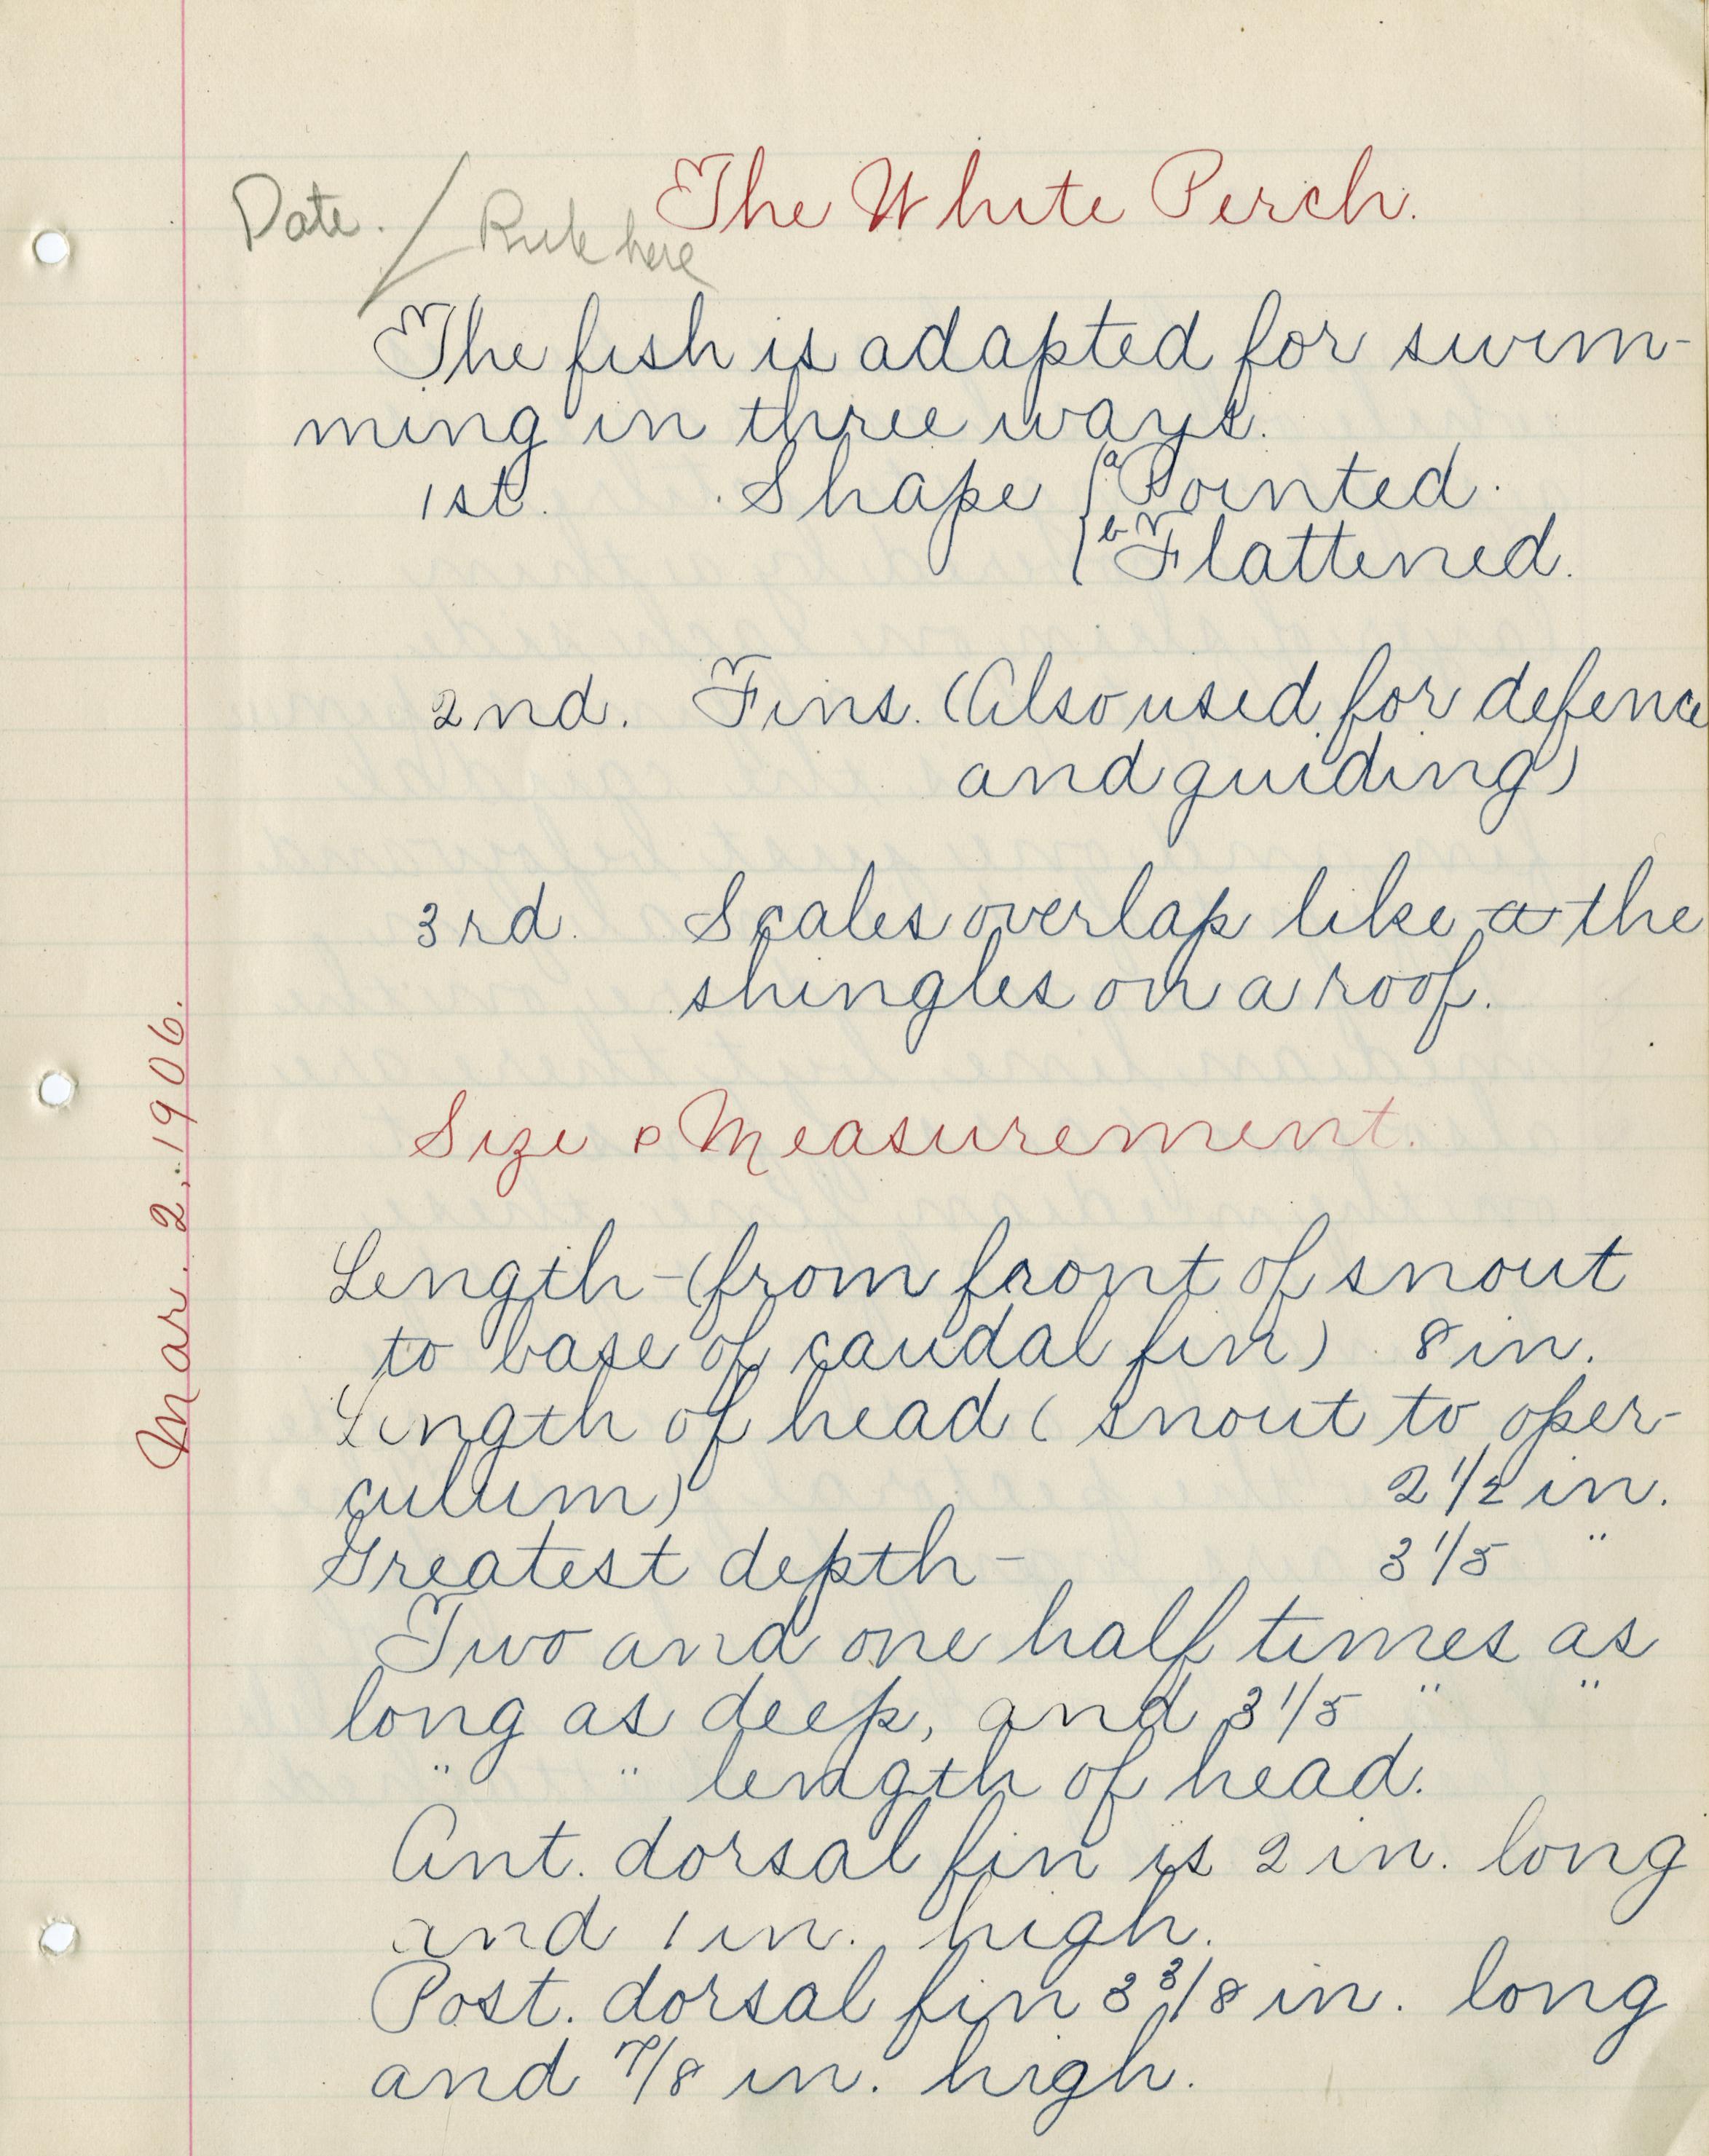 Date. / Rule here
The White Perch.
The fish is adapted for swim-
ming in three ways.
1st. Shape { a Pointed.
b Flattened.
2nd. Fins. (Also used for defence
and guiding)
3rd. Scales overlap like a the
shingles on a roof.
Mar. 2, 1906.
Size & Measurement.
Length-(from front of snout
to base of caudal fin) 8 in.
Length of head (snout to oper-
cullum) 2 1/2 in.
Greatest depth- 3 1/5 "
Two and one half times as
long as deep, and 3 1/5 " "
" " length of head.
Ant. dorsal fin is 2 in. long
and 1 in. high.
Post. dorsal fin 3 3/8 in. long
and 7/8 in. high.